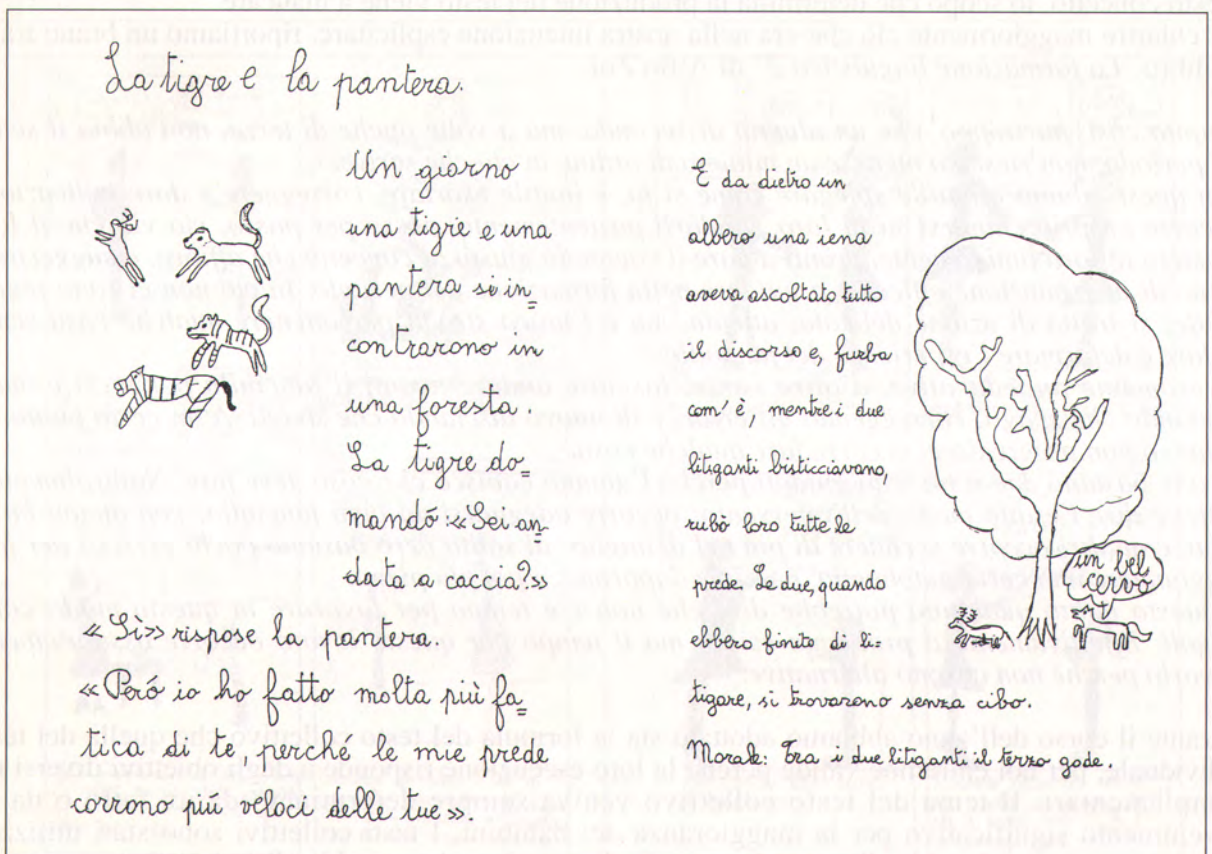 La tigre e la pantera.
Un giorno
una tigre e una
pantera si in=
contrarono in
una foresta.
La tigre do=
mandó: «Sei an=
data a caccia?»
«Sì» rispose la pantera.
«Peró io ho fatto molta più fa=
tica di te, perché le mie prede
corrono più veloci delle tue».
E da dietro un
albero una iena
aveva ascoltato tutto
il discorso e, furba
com'è, mentre i due
litiganti bisticciavano,
rubò loro tutte le
prede. I due, quando
ebbero finito di li=
tigare, si trovarono senza cibo.
Morale: Fra i due litiganti il terzo gode.
un bel
cervo